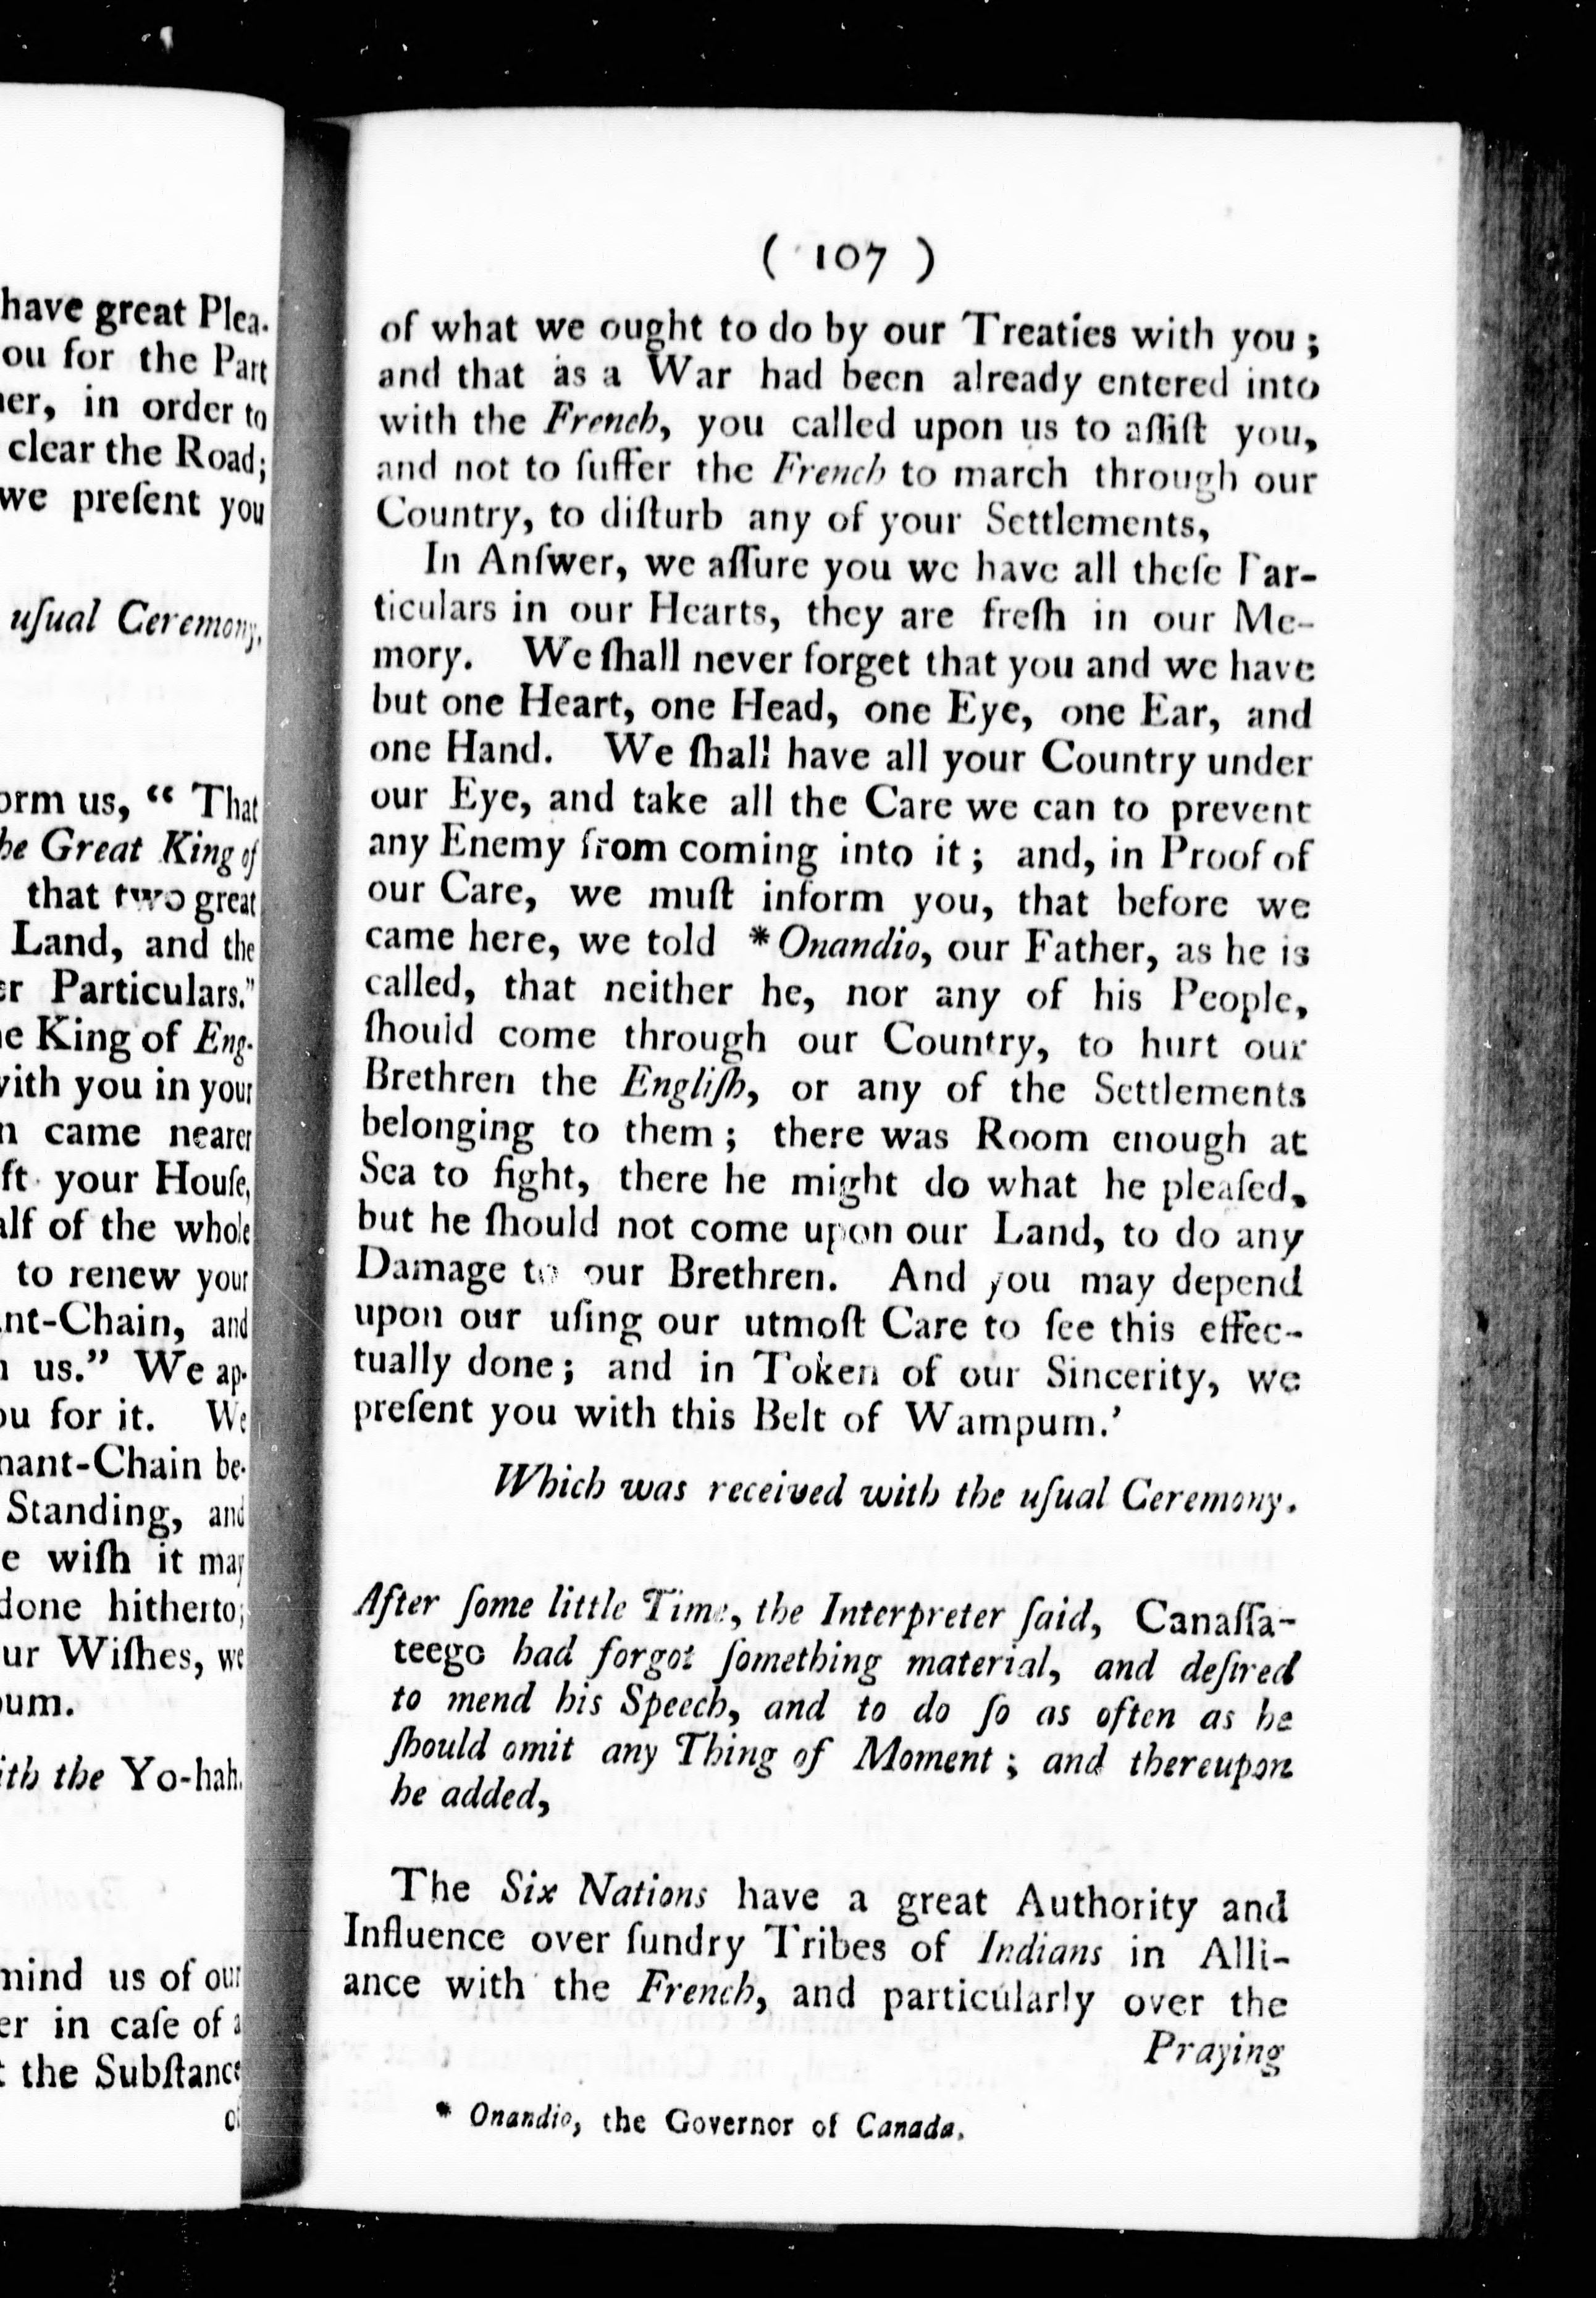 have great Plea-
ou for the Part
er, in order to
clear the Road;
we preſent you
uſual Ceremony.
orm us, “ That
he Great King of
that two great
Land, and the
er Particulars."
e King of Eng-
with you in your
n came nearer
ft your Houſe,
alf of the whole
to renew your
nt-Chain, and
us.” We ap-
ou for it. We
nant-Chain be-
Standing, and
e wiſh it may
done hitherto;
ur Wiſhes, we
pum.
ith the Yo-hah.
mind us of our
er in caſe of a
t the Subſtance
of
( 107 )
of what we ought to do by our Treaties with you ;
and that as a War had been already entered into
with the French, you called upon us to aſſiſt you,
and not to ſuffer the French to march through our
Country, to diſturb any of your Settlements,
In Anſwer, we aſſure you we have all theſe Par-
ticulars in our Hearts, they are freſh in our Me-
mory. We ſhall never forget that you and we have
but one Heart, one Head, one Eye, one Ear, and
one Hand. We ſhall have all your Country under
our Eye, and take all the Care we can to prevent
any Enemy from coming into it ; and, in Proof of
our Care, we muſt inform you, that before we
came here, we told * Onandio, our Father, as he is
called, that neither he, nor any of his People,
ſhould come through our Country, to hurt our
Brethren the Engliſh, or any of the Settlements
belonging to them ; there was Room enough at
Sea to fight, there he might do what he pleaſed,
but he ſhould not come upon our Land, to do any
Damage to our Brethren. And you may depend
upon our uſing our utmoſt Care to ſee this effec-
tually done ; and in Token of our Sincerity, we
preſent you with this Belt of Wampum.’
Which was received with the uſual Ceremony.
After ſome little Time, the Interpreter ſaid, Canaſſa-
teego had forgot ſomething material, and deſired
to mend his Speech, and to do ſo as often as he
ſhould omit any Thing of Moment ; and thereupon
he added,
The Six Nations have a great Authority and
Influence over ſundry Tribes of Indians in Alli-
ance with the French, and particularly over the
Praying
* Onandio, the Governor of Canada.